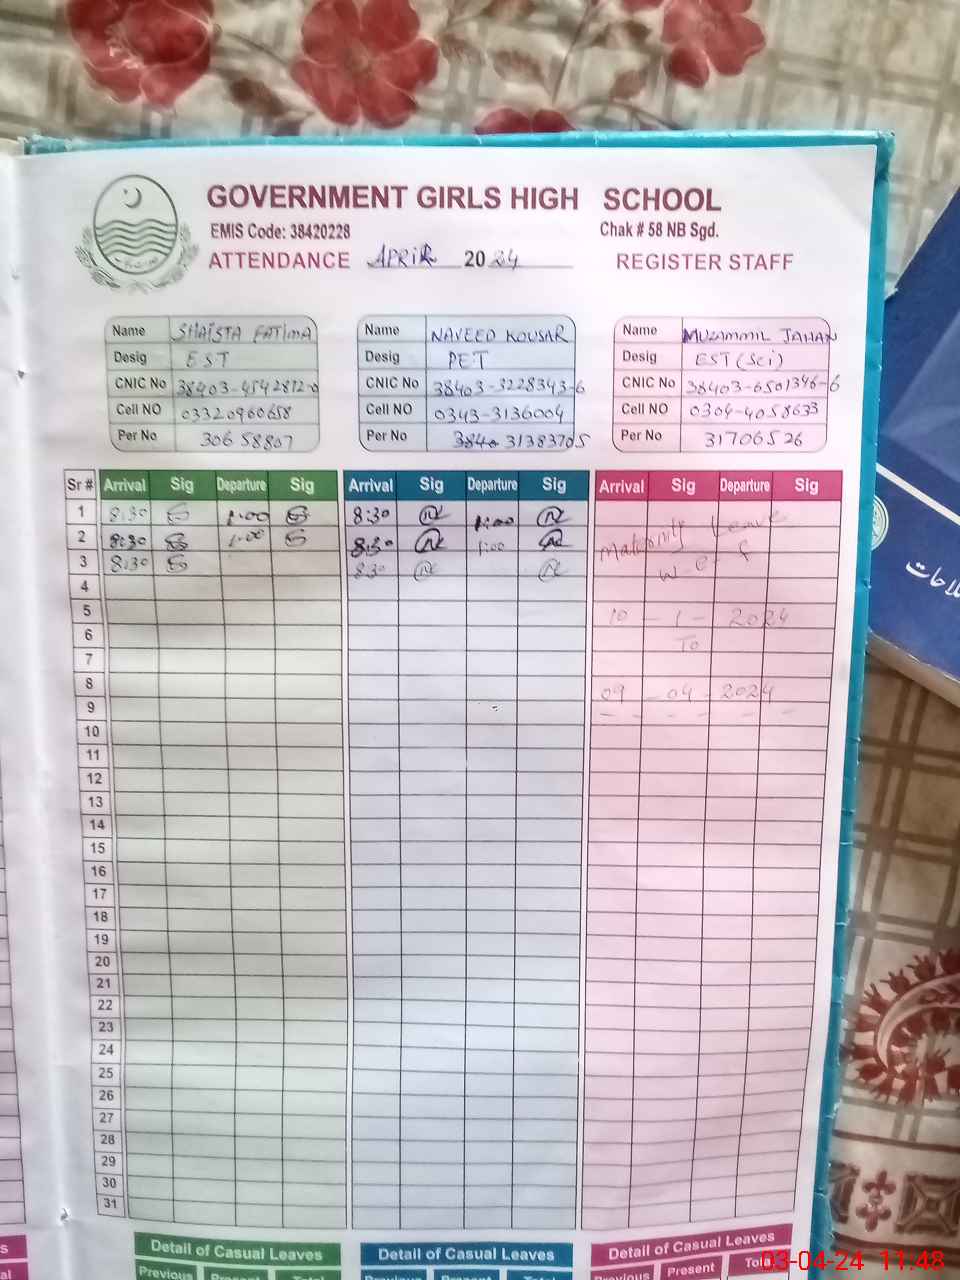 GOVERNMENT GIRLS HIGH SCHOOL
EMIS Code: 38420228 Chak # 58 NB Sgd.
ATTENDANCE APRIL 2024 REGISTER STAFF
Name SHAISTA FATIMA Name NAVEED KOUSAR Name MUZAMMIL JAHAN
Desig EST Desig PET Desig EST (Sci)
CNIC No 38403-4542812-0 CNIC No 38403-3228343-6 CNIC No 38403-6501346-6
Cell NO 03320960658 Cell NO 0343-3136004 Cell NO 0304-4058633
Per No 30658807 Per No 31383705 Per No 31706526
Sr # Arrival Sig Departure Sig Arrival Sig Departure Sig Arrival Sig Departure Sig
1 8:30 1:00 8:30 1:00 Maternity Leave
2 8:30 1:00 8:30 1:00
3 8:30 8:30 w-e-f
4
5 10 - 1 - 2024
6 To
7
8 09 - 04 - 2024
9
10
11
12
13
14
15
16
17
18
19
20
21
22
23
24
25
26
27
28
29
30
31
Detail of Casual Leaves Detail of Casual Leaves Detail of Casual Leaves
Previous Present Total Previous Present Total Previous Present
03-04-24 11:48